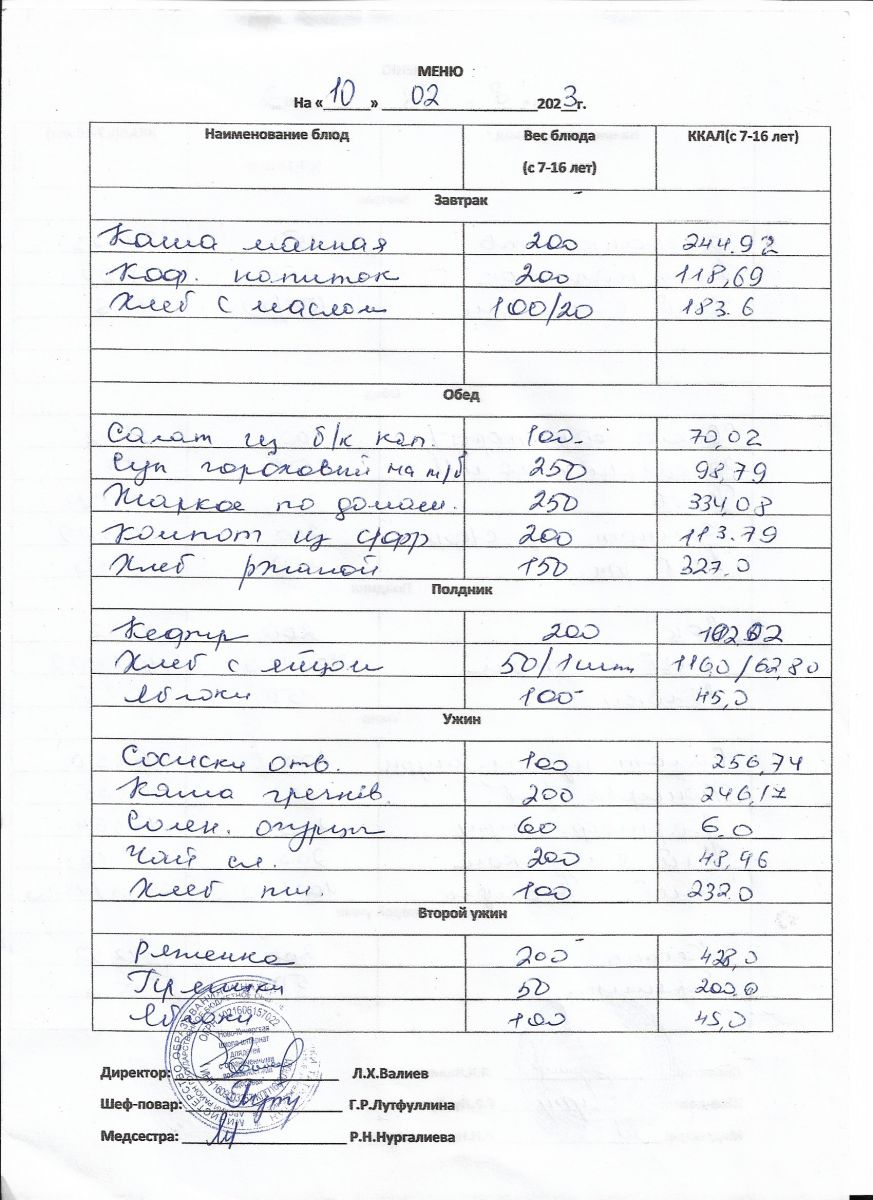 МЕНЮ
На «10» 02 2023г.
Наименование блюд Вес блюда (с 7-16 лет) ККАЛ(с 7-16 лет)
Завтрак
Каша манная 200 244.92
Коф. напиток 200 118,69
Хлеб с маслом 100/20 183.6
Обед
Салат из б/к кап. 100 70,02
Суп гороховый на м/б 250 98,79
Жаркое по домаш. 250 334,08
Компот из с/фр 200 113.79
Хлеб ржаной 150 327.0
Полдник
Кефир 200
Хлеб с яйцом 50/1шт 116,0/62,80
Яблоки 100 45,0
Ужин
Сосиски отв. 100 256,74
Каша гречнев. 200 246,17
Солен. огурцы 60 6.0
Чай сл. 200 48,96
Хлеб пш. 100 232.0
Второй ужин
Ряженка 200 428,0
Пряники 50 200.0
Яблоки 100 45,0
Директор: Л.Х.Валиев
Шеф-повар: Г.Р.Лутфуллина
Медсестра: Р.Н.Нургалиева